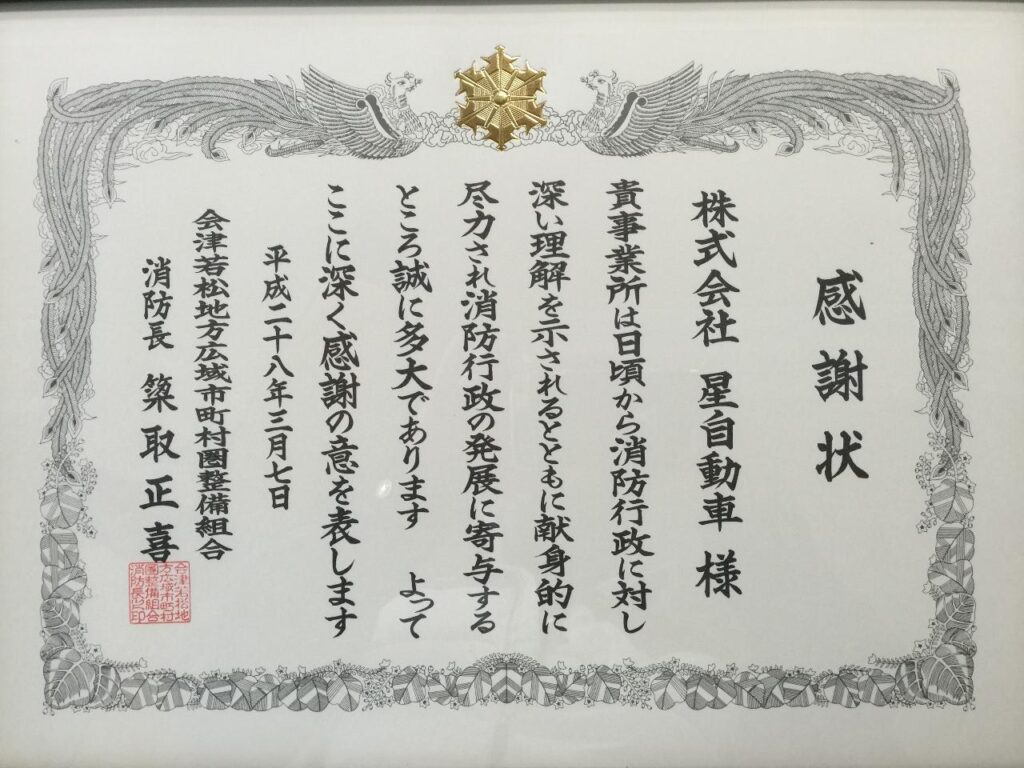 感謝状
株式会社 星自動車 様
貴事業所は日頃から消防行政に対し
深い理解を示されるとともに献身的に
尽力され消防行政の発展に寄与する
ところ誠に多大であります よって
ここに深く感謝の意を表します
平成二十八年三月七日
会津若松地方広域市町村圏整備組合
消防長 簗取正喜
会津若松地
方広域市町村
圏整備組合
消防長之印